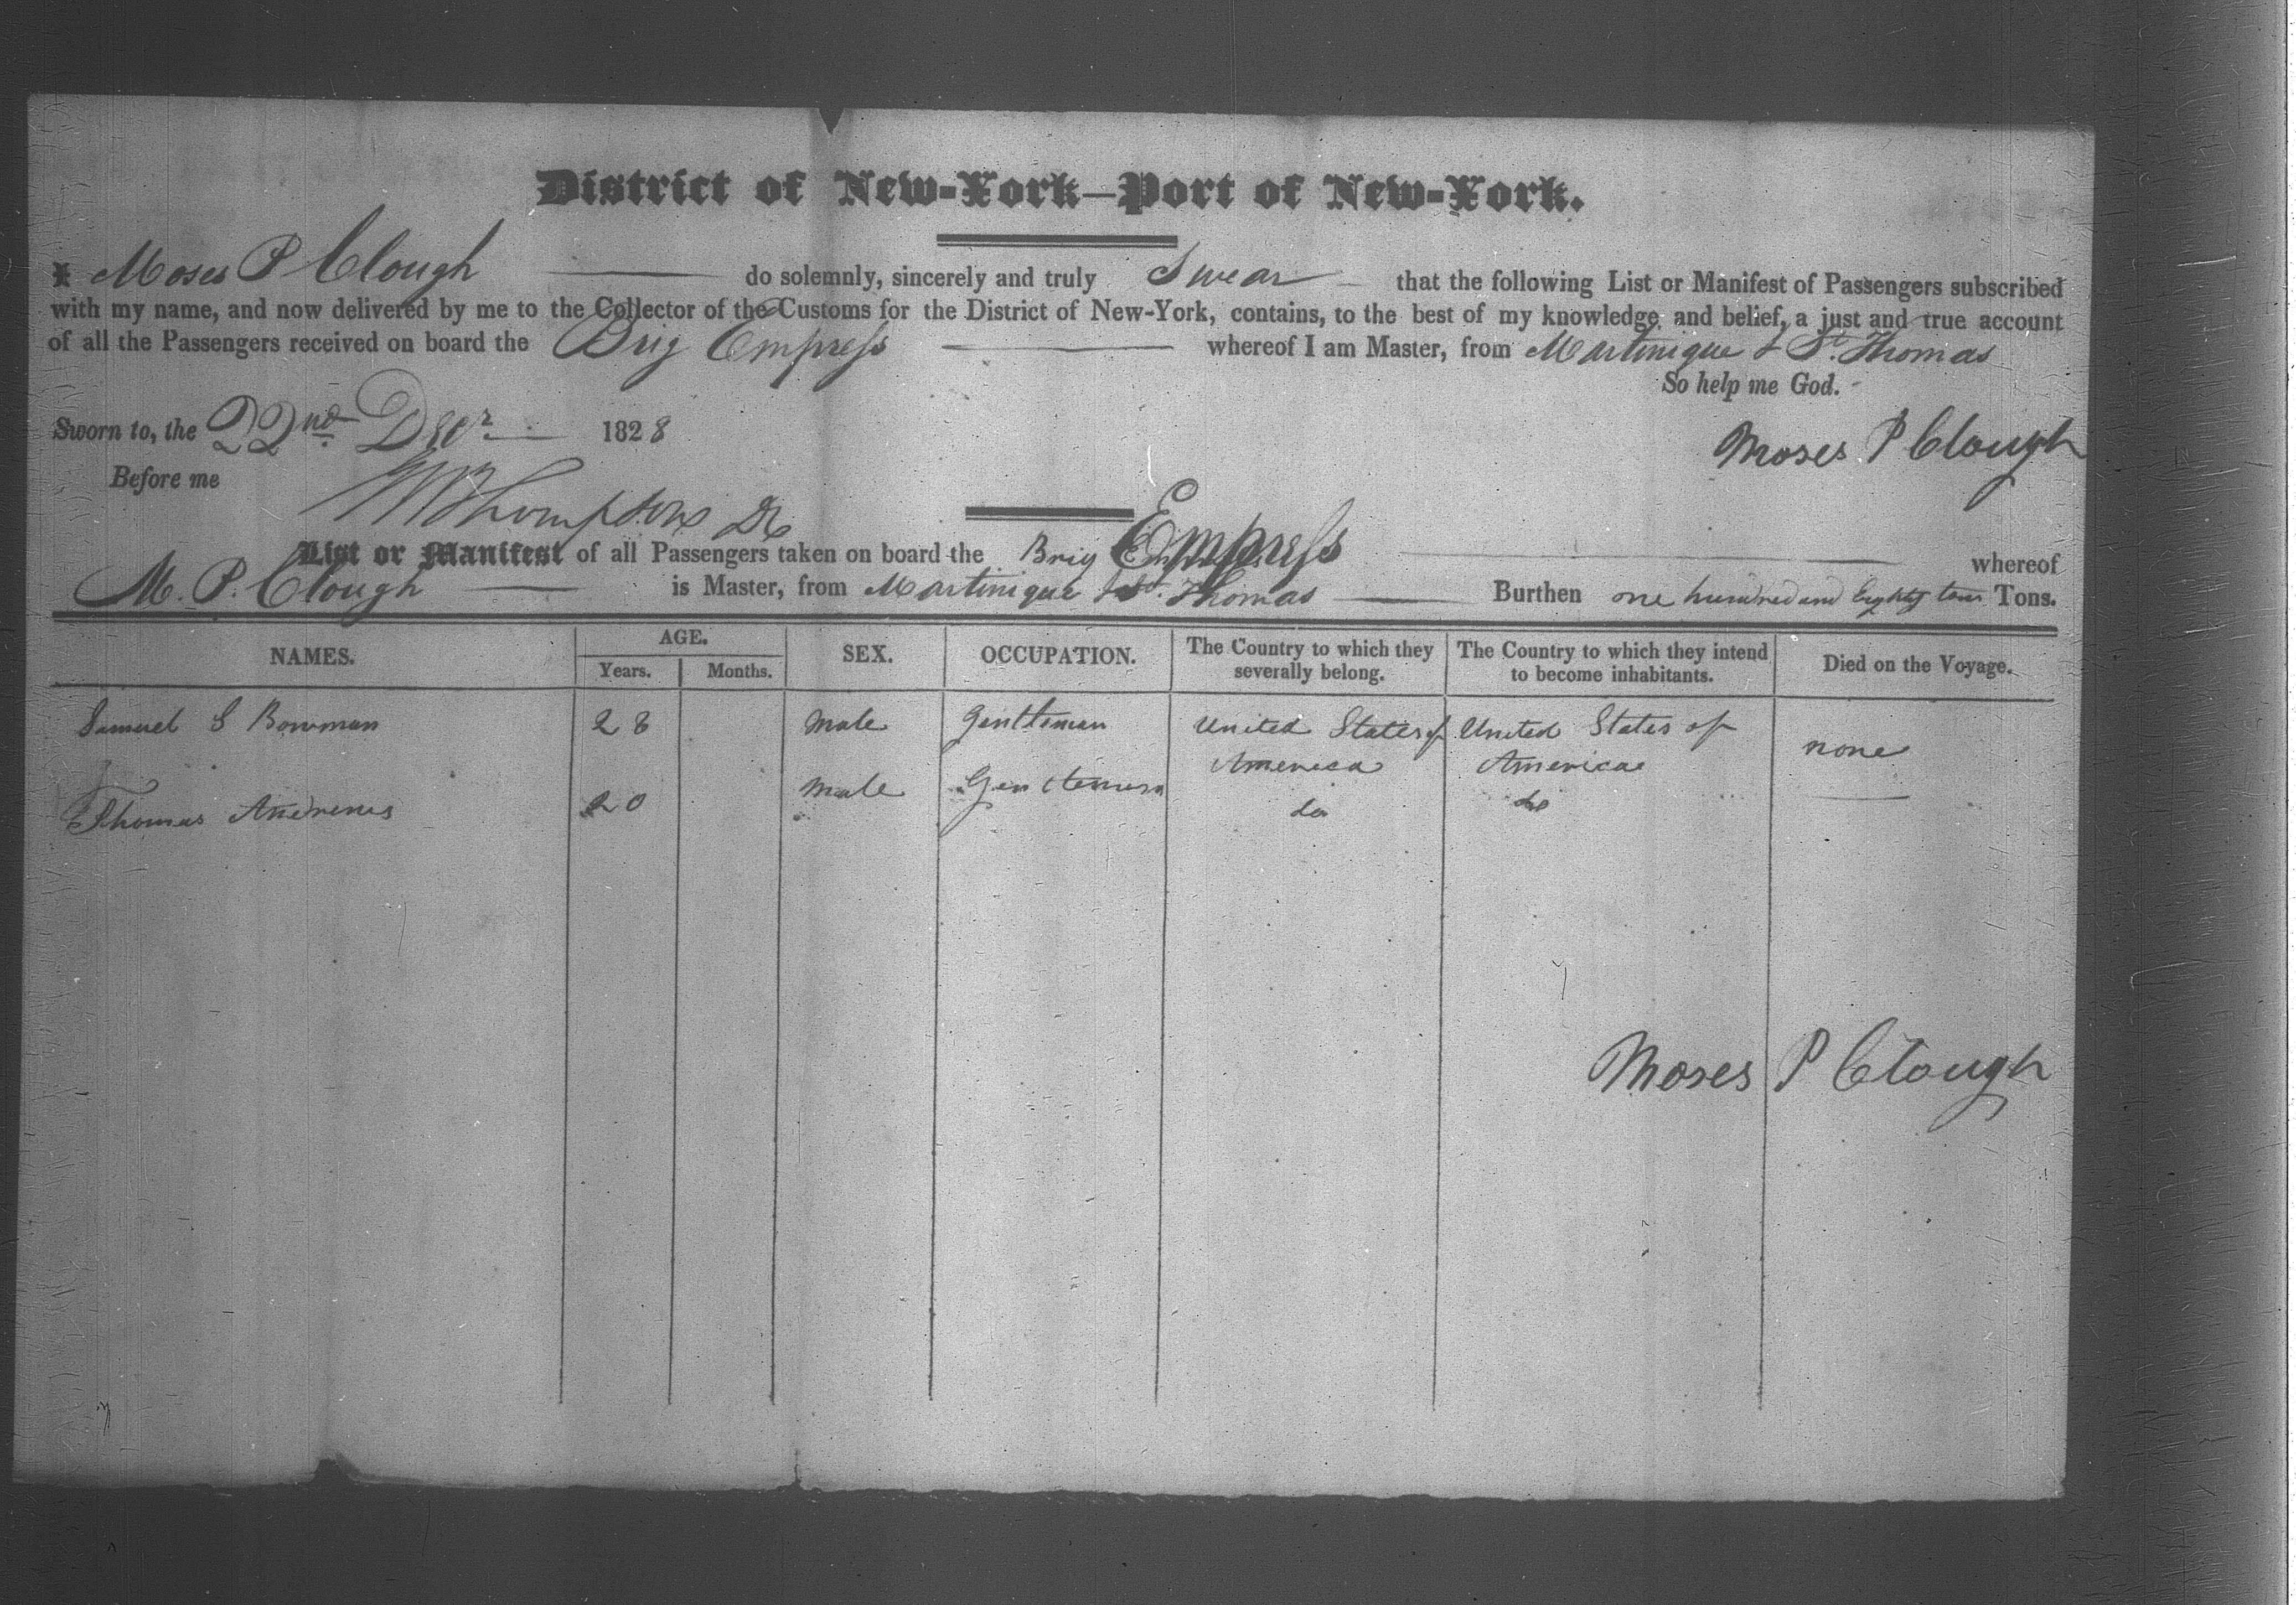 District of New-York—Port of New-York.
I Moses P Clough do solemnly, sincerely and truly Swear that the following List or Manifest of Passengers subscribed
with my name, and now delivered by me to the Collector of the Customs for the District of New-York, contains, to the best of my knowledge and belief, a just and true account
of all the Passengers received on board the Brig Empress whereof I am Master, from Martinique & St. Thomas
So help me God.
Sworn to, the 22nd Decr 1828
Moses P Clough
Before me
Thompson
List or Manifest of all Passengers taken on board the Brig Empress whereof
M. P. Clough is Master, from Martinique & St. Thomas Burthen one hundred and Eighty Tons.
NAMES. AGE. Years. Months. SEX. OCCUPATION. The Country to which they severally belong. The Country to which they intend to become inhabitants. Died on the Voyage.
Samuel S Bowman 28 Male Gentleman United States of America United States of America none
Thomas Andrews 20 Male Gentleman do do
Moses P Clough